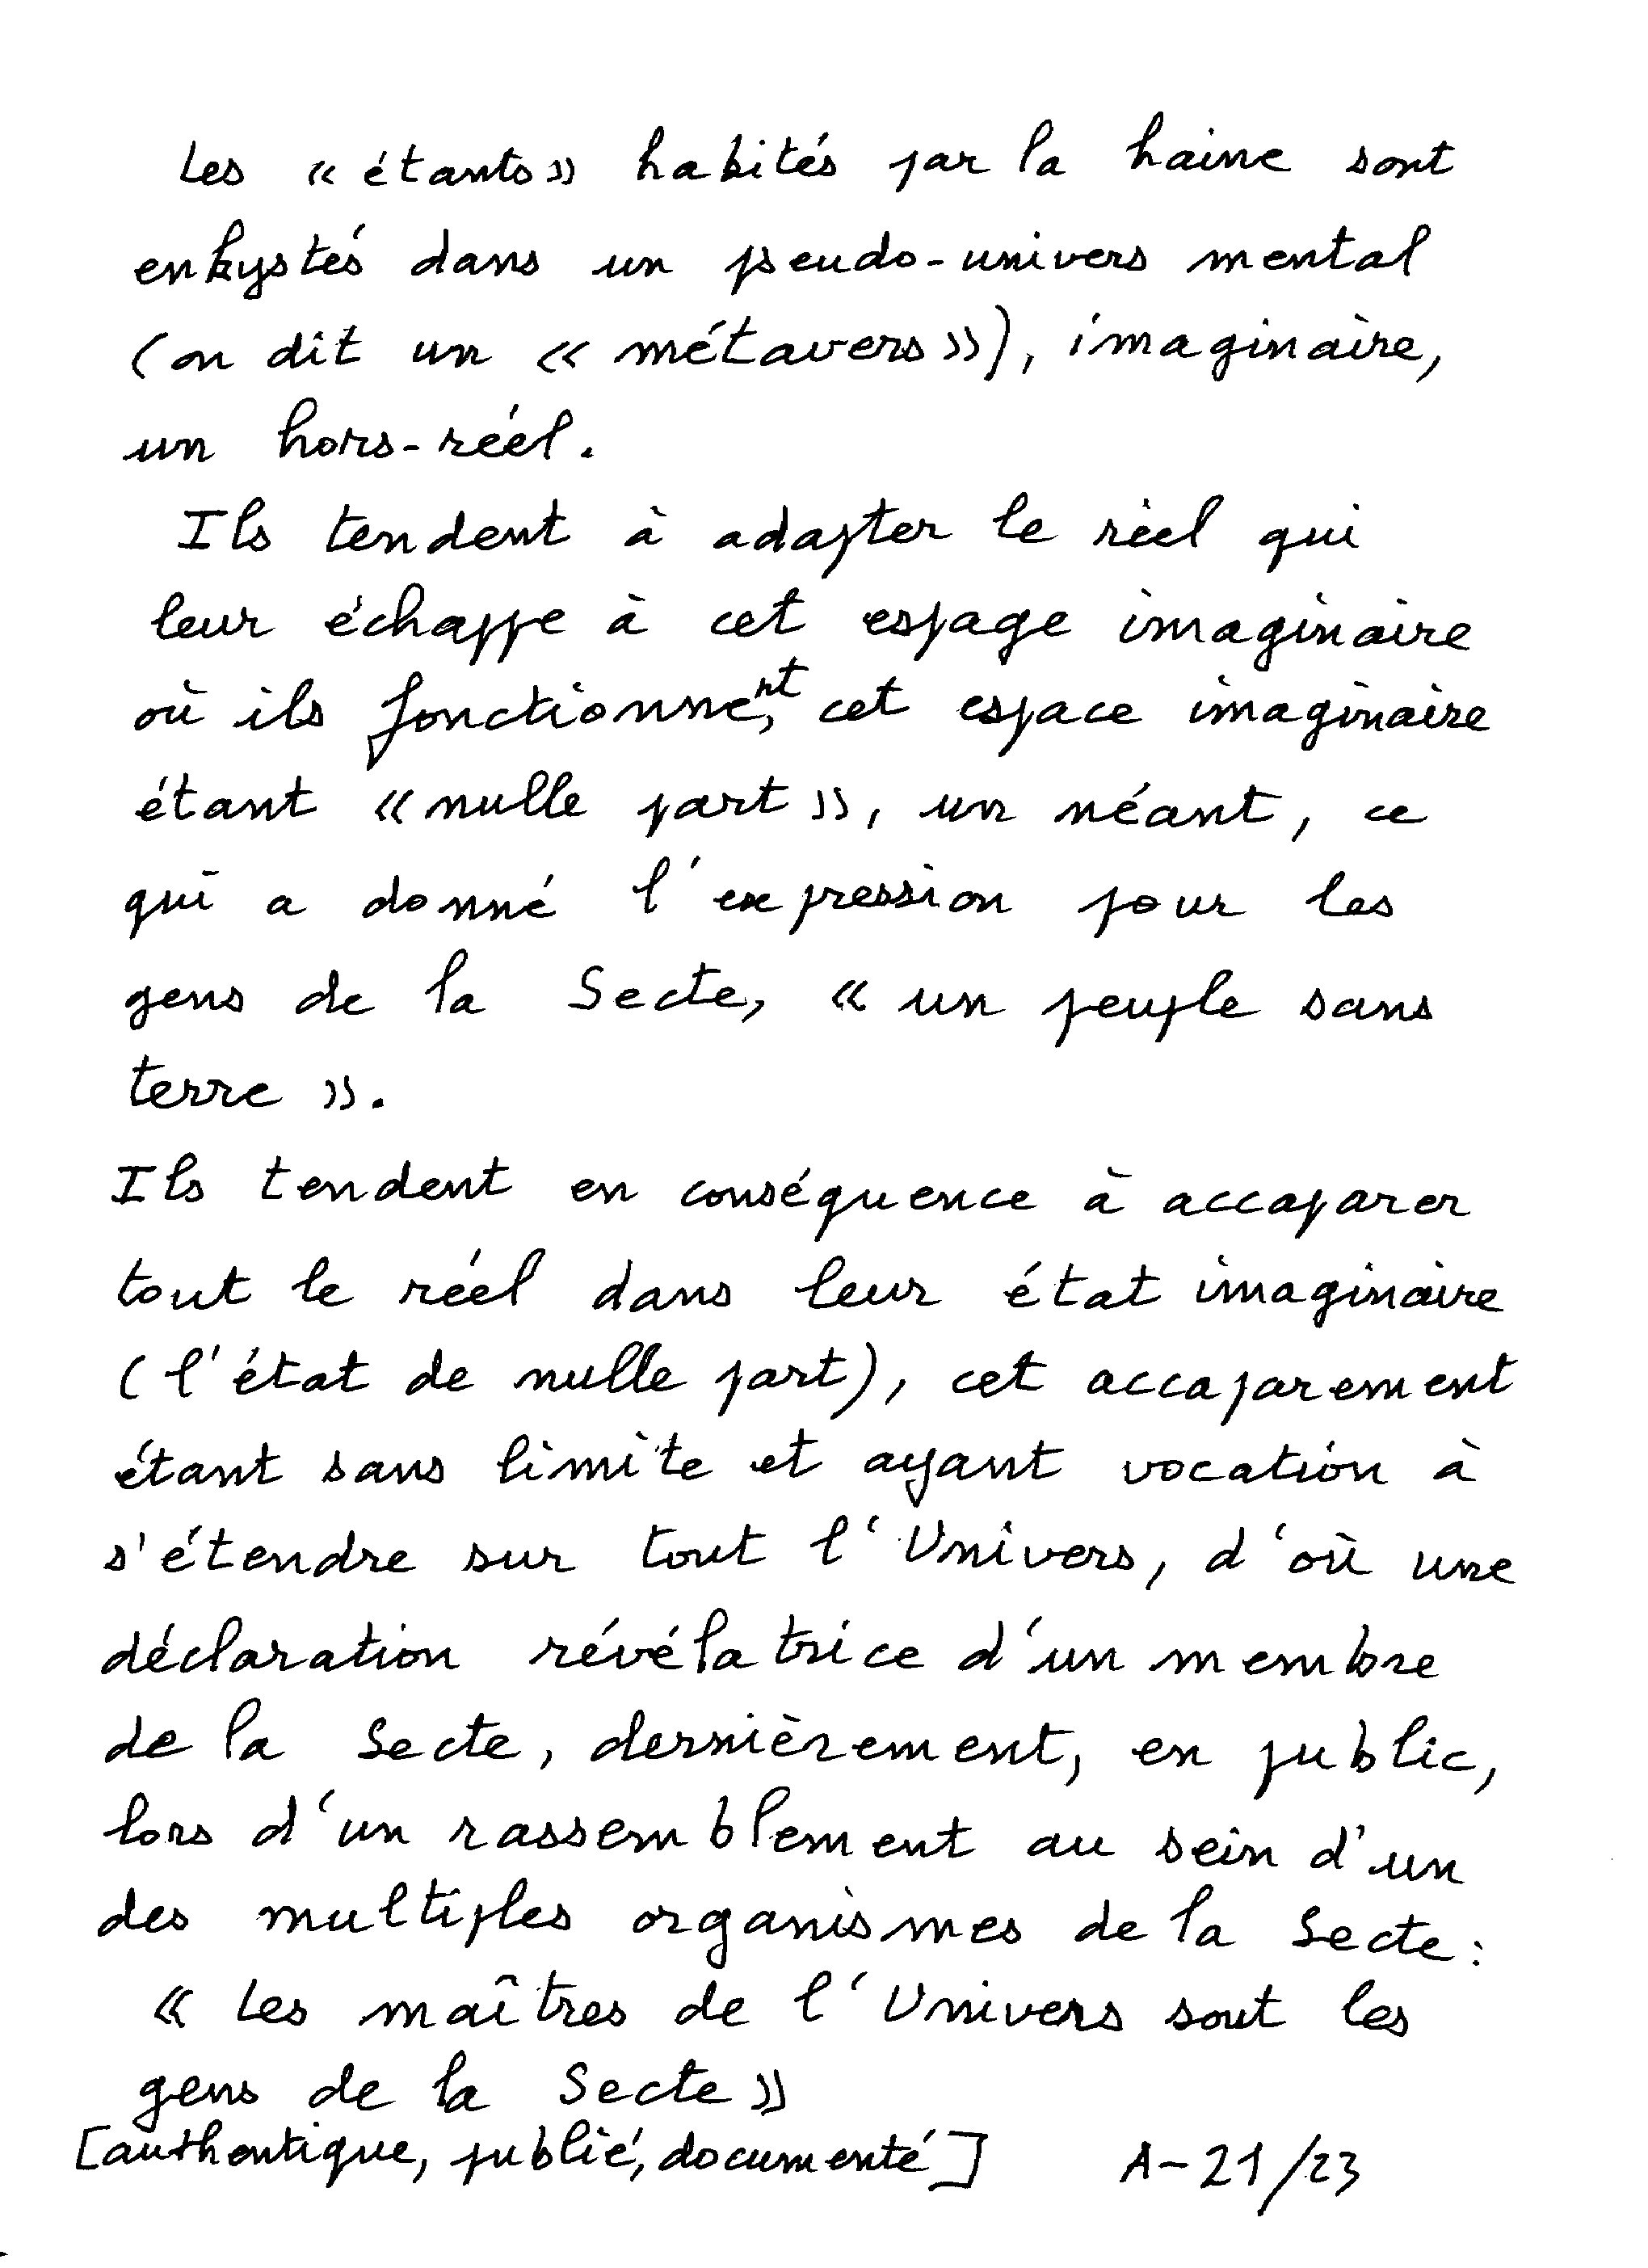 Les « étants » habités par la haine sont
enkystés dans un pseudo-univers mental
(on dit un « métavers »), imaginaire,
un hors-réel.
Ils tendent à adapter le réel qui
leur échappe à cet espage imaginaire
où ils fonctionnent, cet espace imaginaire
étant « nulle part », un néant, ce
qui a donné l'expression pour les
gens de la Secte, « un peuple sans
terre ».
Ils tendent en conséquence à accaparer
tout le réel dans leur état imaginaire
(l'état de nulle part), cet accaparement
étant sans limite et ayant vocation à
s'étendre sur tout l'Univers, d'où une
déclaration révélatrice d'un membre
de la Secte, dernièrement, en public,
lors d'un rassemblement au sein d'un
des multiples organismes de la Secte :
« Les maîtres de l'Univers sont les
gens de la Secte »
[authentique, publié, documenté] A-21/23